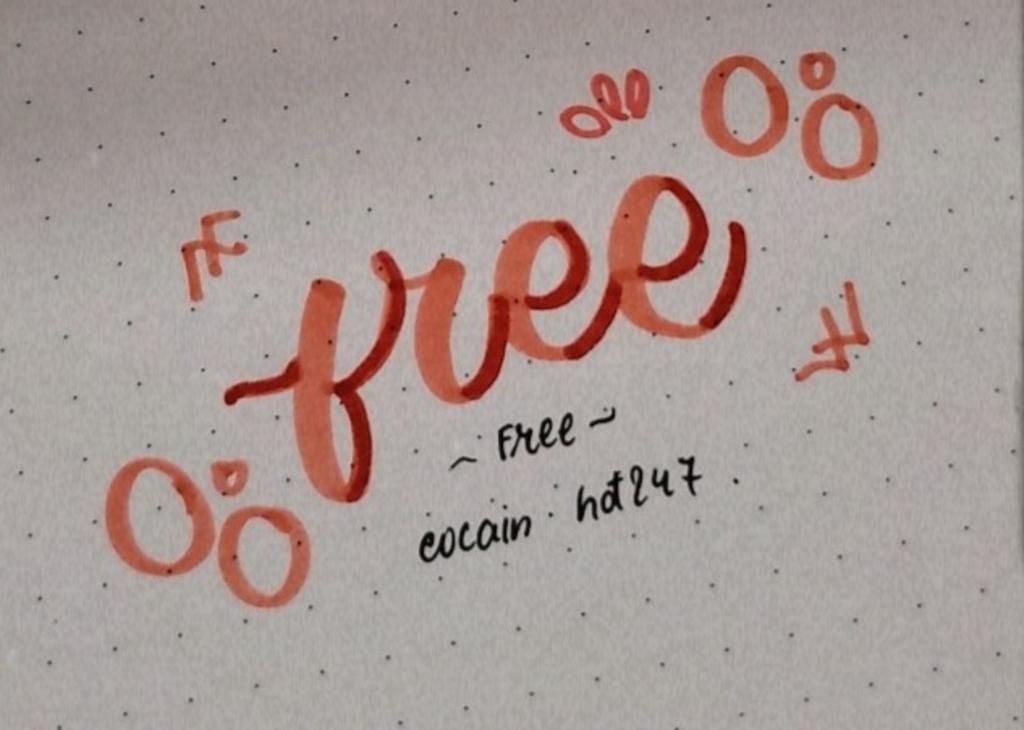 free
~ Free ~
cocain hot247